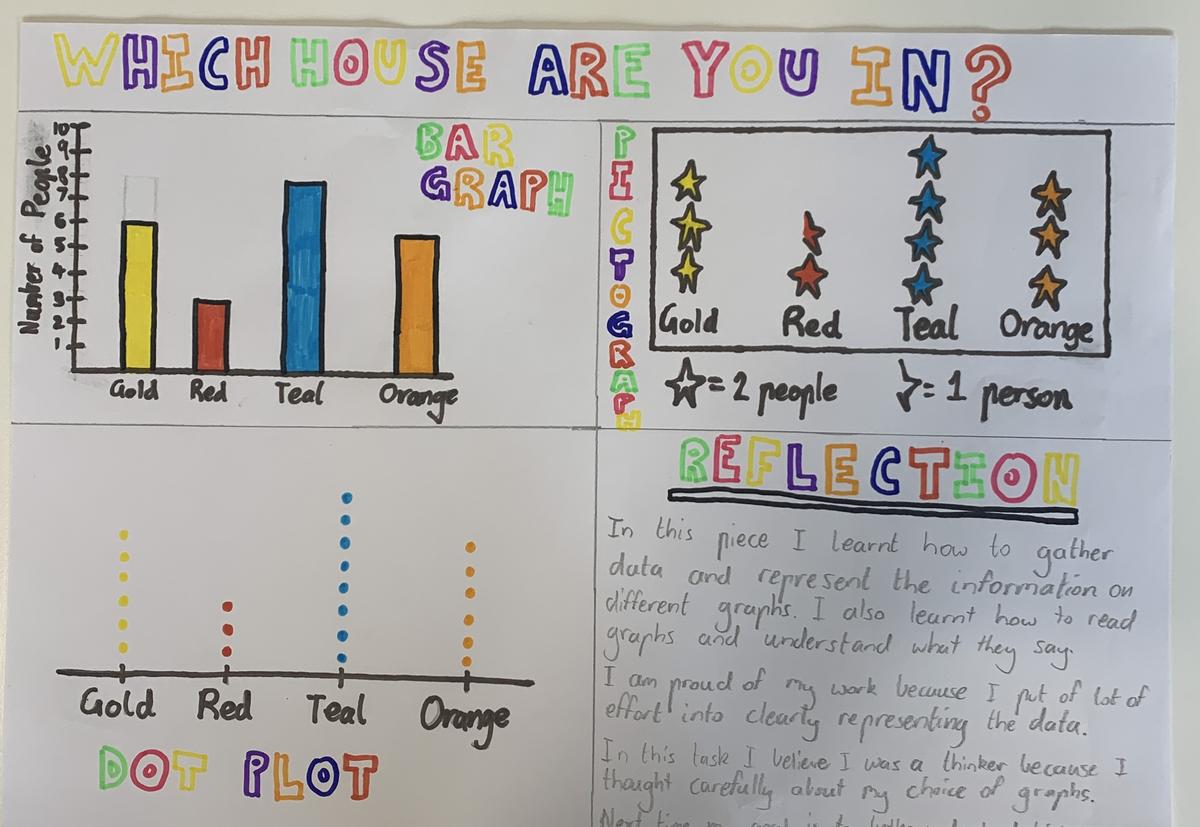 WHICH HOUSE ARE YOU IN?
BAR
GRAPH
Number of People
10
9
8
7
6
5
4
3
2
1
Gold Red Teal Orange
PICTOGRAPH
Gold Red Teal Orange
= 2 people = 1 person
Gold Red Teal Orange
DOT PLOT
REFLECTION
In this piece I learnt how to gather
data and represent the information on
different graphs. I also learnt how to read
graphs and understand what they say.
I am proud of my work because I put of lot of
effort into clearly representing the data.
In this task I believe I was a thinker because I
thought carefully about my choice of graphs.
Next time my goal is to